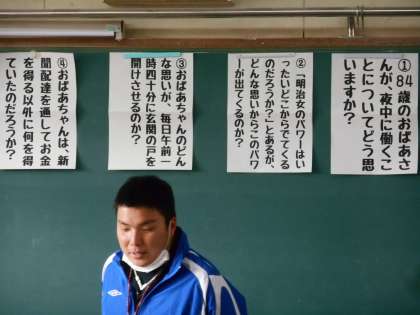 ①84歳のおばあさ
んが、夜中に働くこ
とについてどう思
いますか？
②「明治女のパワーはい
ったいどこからでてくる
のだろうか？」とあるが、
どんな思いからこのパワ
ーが出てくるのか？
③おばあちゃんのどん
な思いが、毎日午前一
時四十分に玄関の戸を
開けさせるのか？
④おばあちゃんは、新
聞配達を通してお金
を得る以外に何を得
ていたのだろうか？
umbro